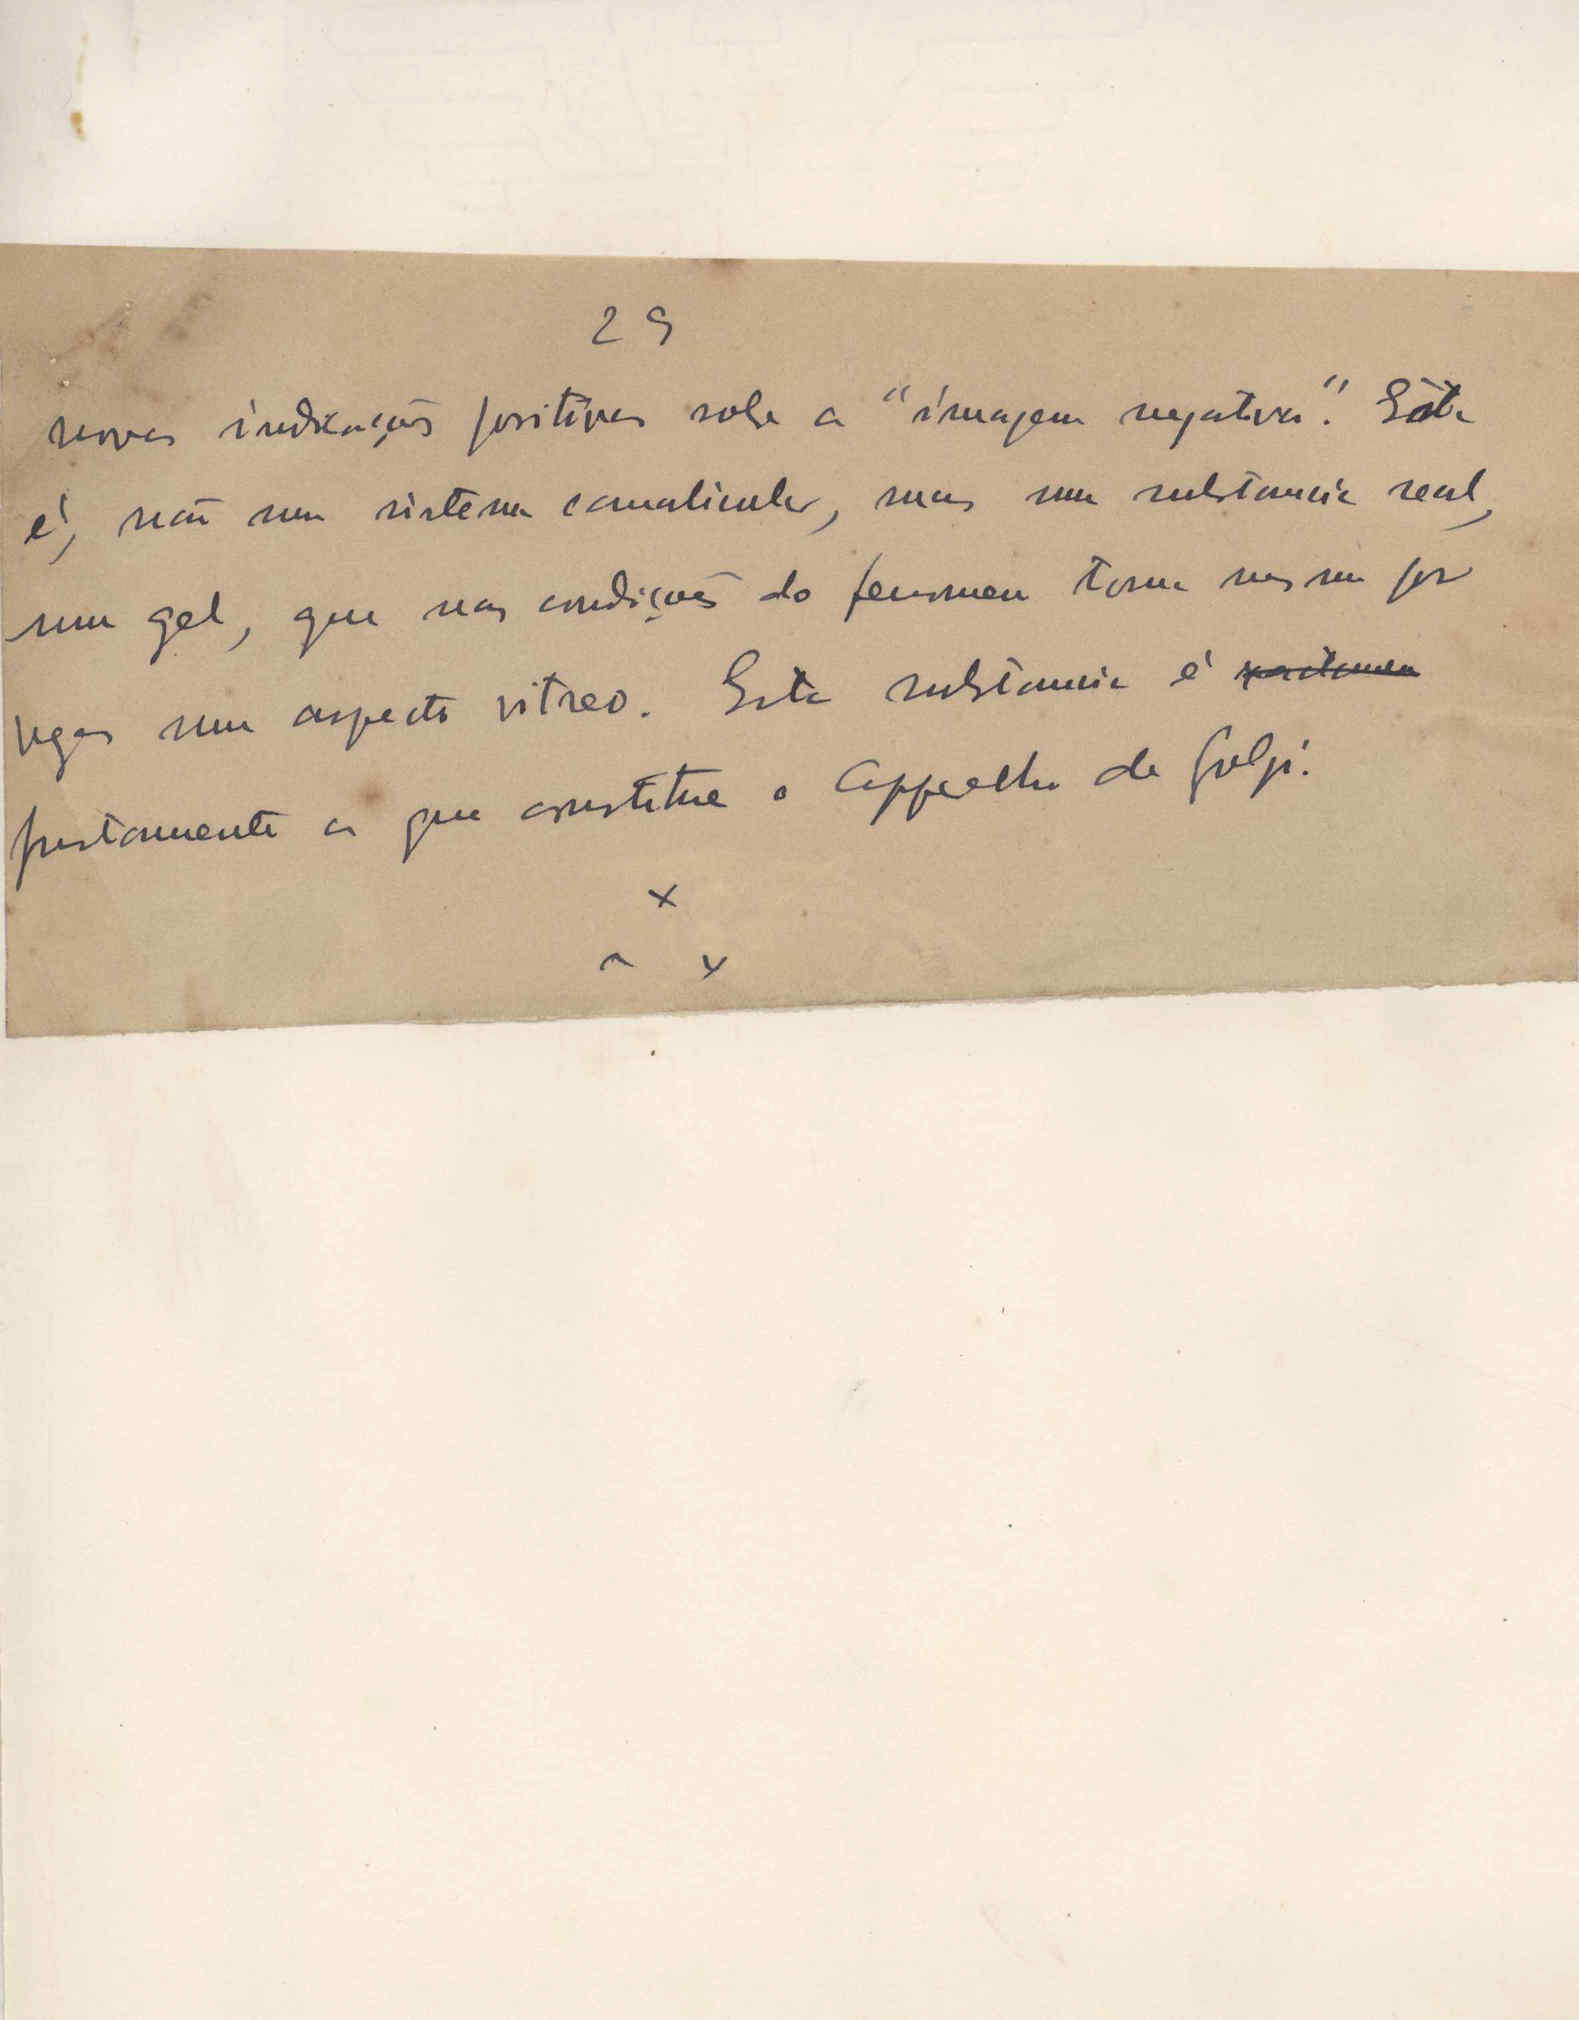 29
novas indicações positivas sobre a "imagem negativa". Esta
é, não um sistema canalicular, mas uma substancia real,
um gel, que nas condições do fenomeno toma mesmo por
vezes um aspecto vitreo. Esta substancia é
justamente a que constitue o Apparelho de Golgi.
x
x x